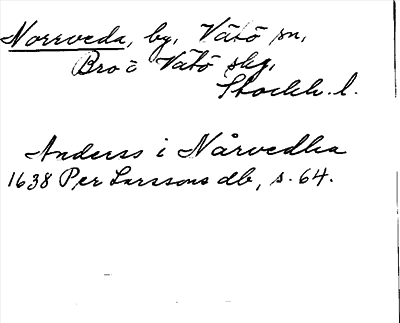 Norrveda, by, Vätö sn,
Bro o Vätö skg,
Stockh. l.
Anders i Nårvedha
1638 Per Larssons db, s. 64.